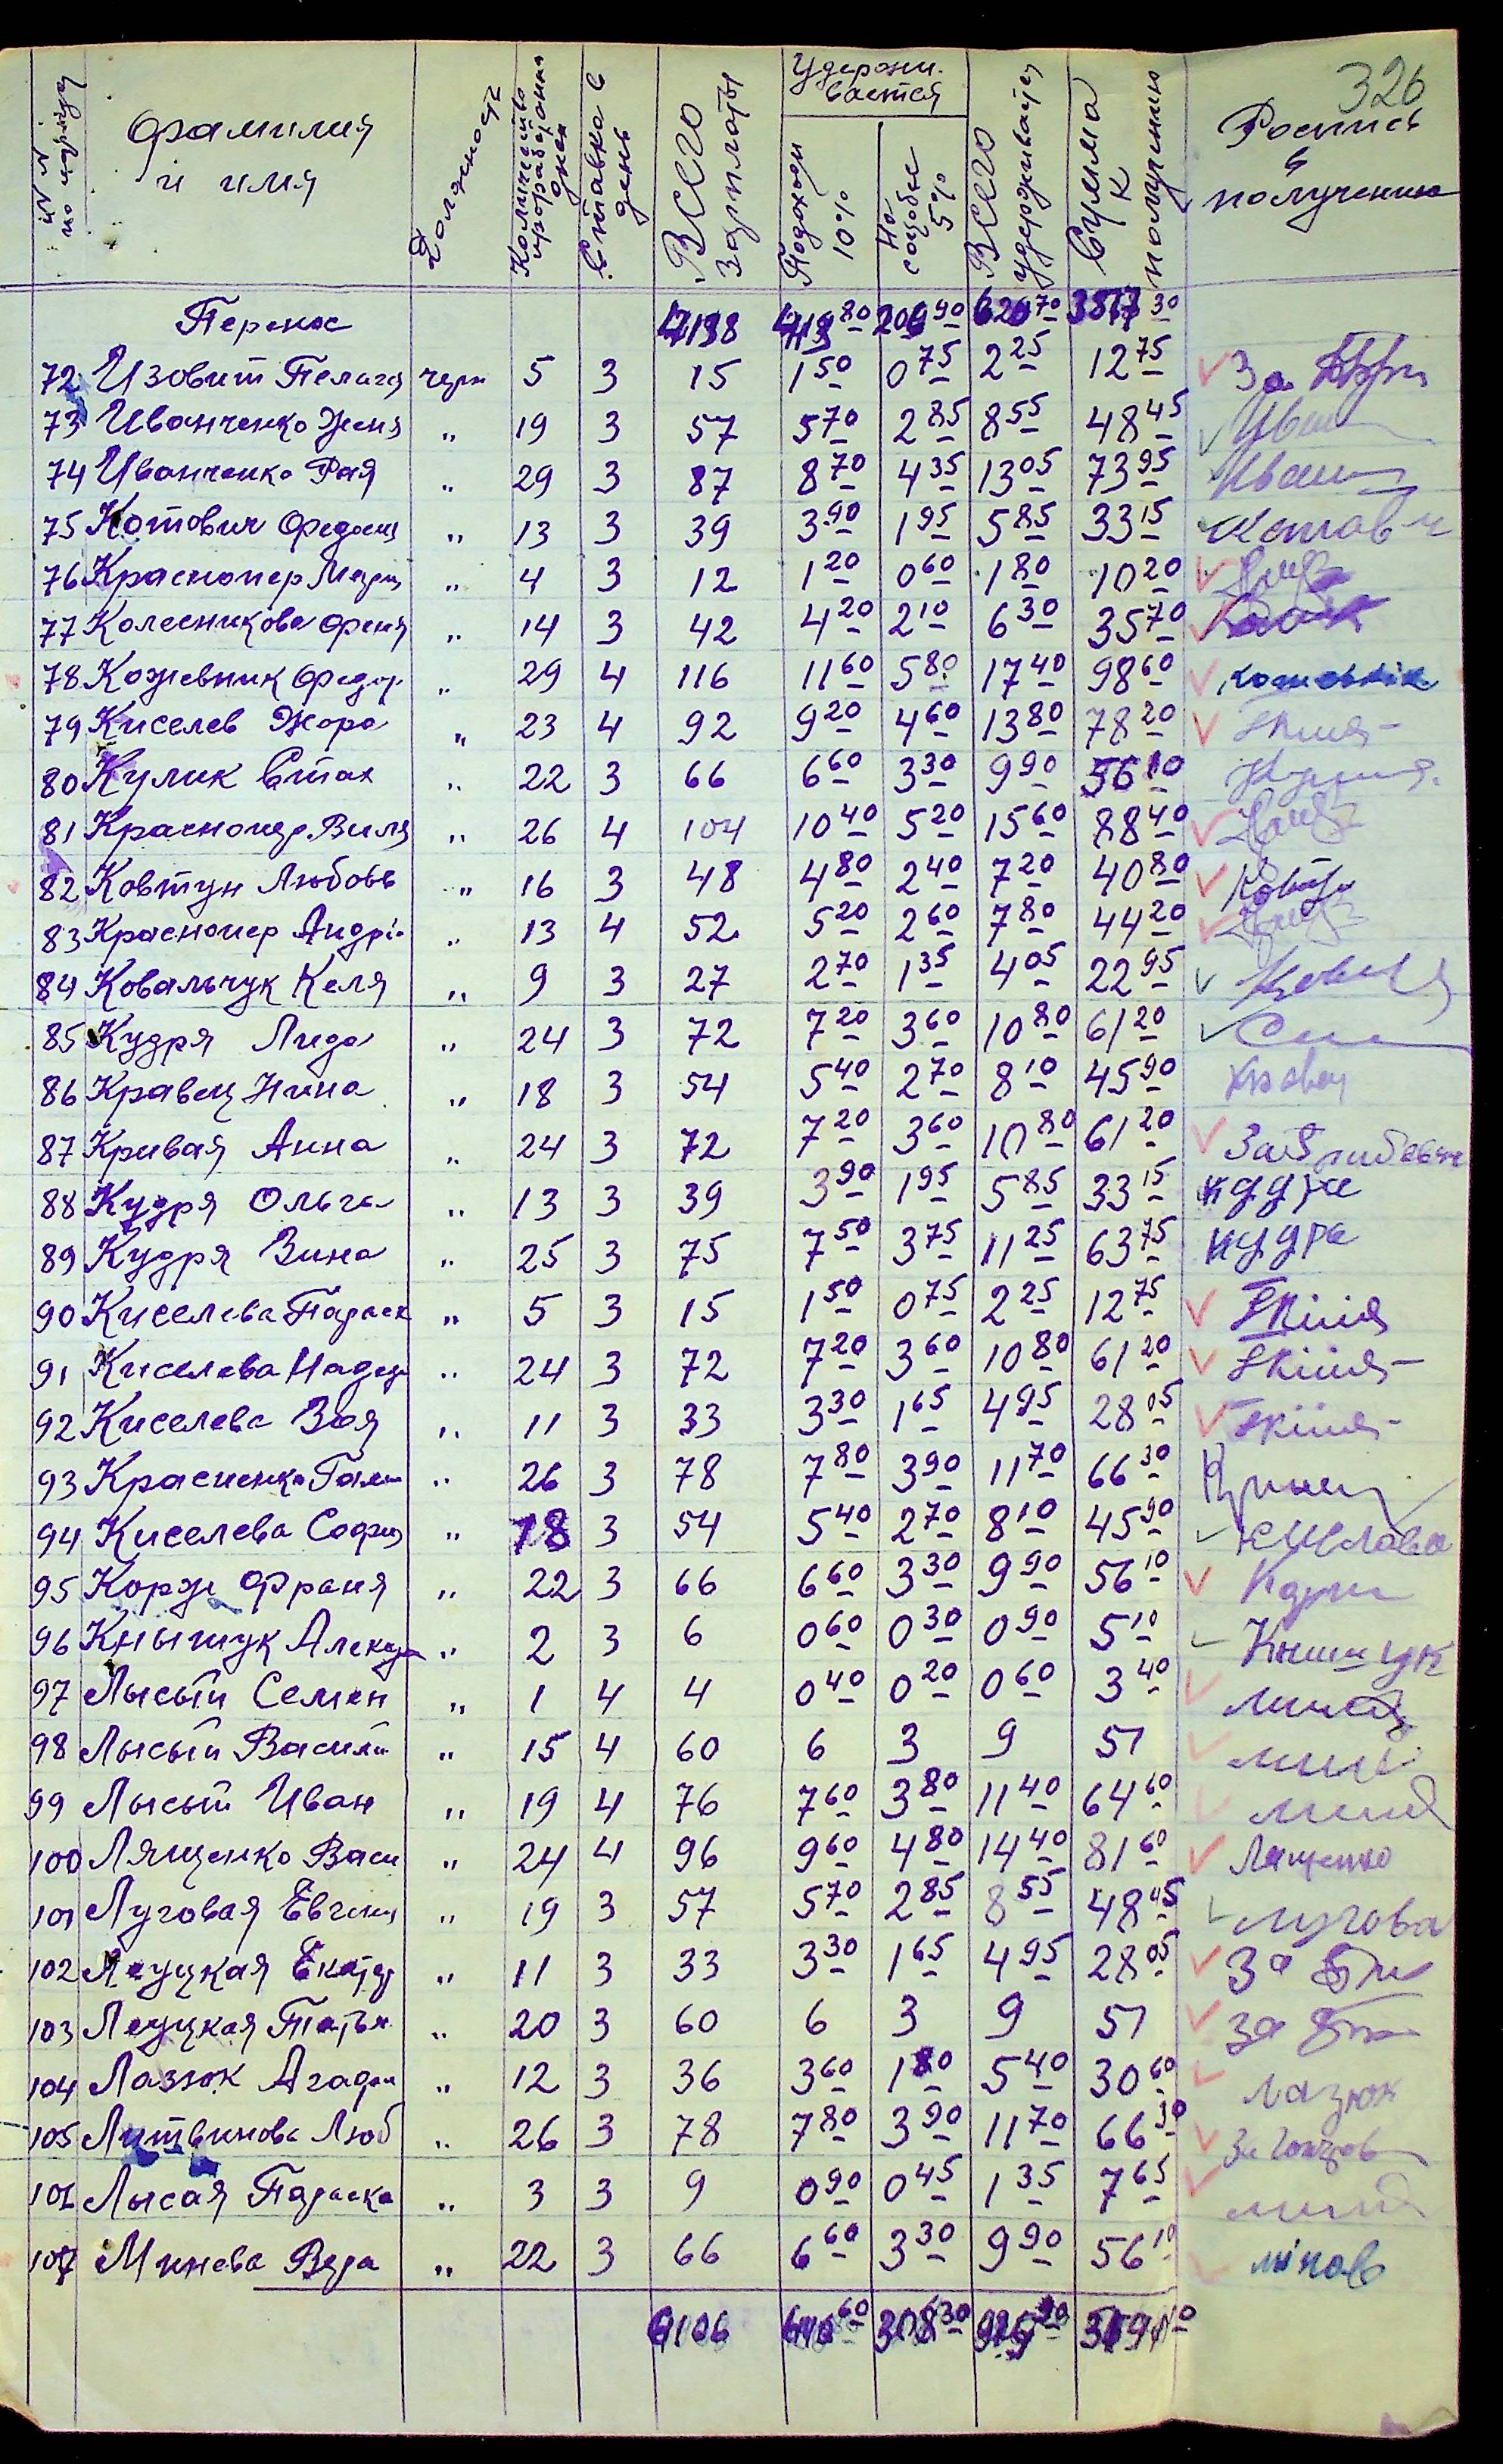 326
№ № по порядку
Фамилия и имя
Должность
Количество проработанных дней
Ставка в день
Всего зарплаты
Удержи-вается
Подоходн 10%
На соцобес 5%
Всего удерживается
Сумма к получению
Роспись в получении
Перенос 206 90 626 70 30
72 Изовит Пелагея черн 5 3 15 1 50 0 75 2 25 12 75 За
73 Иванченко Женя " 19 3 57 5 70 2 85 8 55 48 45 Иван
74 Иванченко Рая " 29 3 87 8 70 4 35 13 05 73 95 Иван
75 Котович Федосия " 13 3 39 3 90 1 95 5 85 33 15 Котович
76 Краснопер Мария " 4 3 12 1 20 0 60 1 80 10 20
77 Колесникова Феня " 14 3 42 4 20 2 10 6 30 35 70
78 Кожевник Федор " 29 4 116 11 60 5 80 17 40 98 60
79 Киселев Жора " 23 4 92 9 20 4 60 13 80 78 20
80 Кулик Стах " 22 3 66 6 60 3 30 9 90 56 10
81 Краснопер Виля " 26 4 104 10 40 5 20 15 60 88 40
82 Ковтун Любовь " 16 3 48 4 80 2 40 7 20 40 80 Ковтун
83 Краснопер Андрі " 13 4 52 5 20 2 60 7 80 44 20
84 Ковальчук Келя " 9 3 27 2 70 1 35 4 05 22 95
85 Кудря Лида " 24 3 72 7 20 3 60 10 80 61 20
86 Кравец Нина " 18 3 54 5 40 2 70 8 10 45 90 Кравец
87 Кривая Анна " 24 3 72 7 20 3 60 10 80 61 20
88 Кудря Ольга " 13 3 39 3 90 1 95 5 85 33 15 кудря
89 Кудря Зина " 25 3 75 7 50 3 75 11 25 63 75 кудря
90 Киселева Параск " 5 3 15 1 50 0 75 2 25 12 75
91 Киселева Надежда " 24 3 72 7 20 3 60 10 80 61 20
92 Киселева Зоя " 11 3 33 3 30 1 65 4 95 28 05
93 Красненко Галин " 26 3 78 7 80 3 90 11 70 66 30
94 Киселева София " 18 3 54 5 40 2 70 8 10 45 90
95 Корж Франя " 22 3 66 6 60 3 30 9 90 56 10
96 Кнышук Александ " 2 3 6 0 60 0 30 0 90 5 10 Книшук
97 Лысый Семен " 1 4 4 0 40 0 20 0 60 3 40
98 Лысый Василий " 15 4 60 6 3 9 51
99 Лысый Иван " 19 4 76 7 60 3 80 11 40 64 60
100 Лященко Васи " 24 4 96 9 60 4 80 14 40 81 60 Лященко
101 Луговая Евгения " 19 3 57 5 70 2 85 8 55 48 45 лугова
102 Леуцкая Екатер " 11 3 33 3 30 1 65 4 95 28 05 За
103 Леуцкая Татья " 20 3 60 6 3 9 51 За
104 Лазюк Агафи " 12 3 36 3 60 1 80 5 40 30 60 лазюк
105 Литвинова Люб " 26 3 78 7 80 3 90 11 70 66 30
106 Лысая Параска " 3 3 9 0 90 0 45 1 35 7 65
107 Минева Вера " 22 3 66 6 60 3 30 9 90 56 10
6106 60 308 30